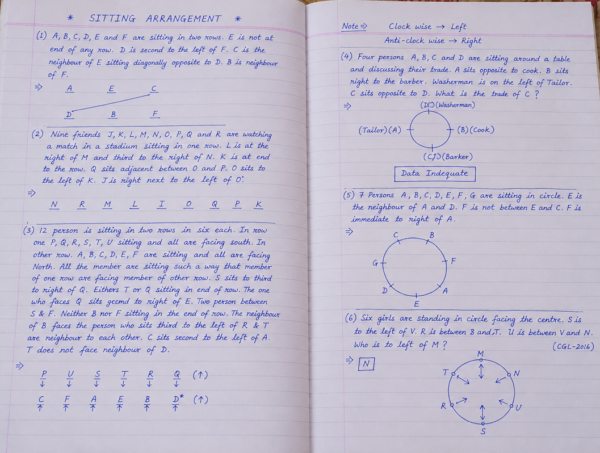 * SITTING ARRANGEMENT *
(1) A, B, C, D, E and F are sitting in two rows. E is not at
end of any row. D is second to the left of F. C is the
neighbour of E sitting diagonally opposite to D. B is neighbour
of F.
⇒ A E C
D B F
(2) Nine friends J, K, L, M, N, O, P, Q and R are watching
a match in a stadium sitting in one row. L is at the
right of M and third to the right of N. K is at end
to the row. Q sits adjacent between O and P. O sits to
the left of K. J is right next to the left of O.
⇒
N R M L I O Q P K
(3) 12 person is sitting in two rows in six each. In row
one P, Q, R, S, T, U sitting and all are facing south. In
other row. A, B, C, D, E, F are sitting and all are facing
North. All the member are sitting such a way that member
of one row are facing member of other row. S sits to third
to right of Q. Eithers T or Q sitting in end of row. The one
who faces Q sits second to right of E. Two person between
S & F. Neither B nor F sitting in the end of row. The neighbour
of B faces the person who sits third to the left of R & T
are neighbour to each other. C sits second to the left of A.
T does not face neighbour of D.
⇒
P U S T R Q (↑)
↓ ↓ ↓ ↓ ↓ ↓
C F A E B D* (↑)
↑ ↑ ↑ ↑ ↑ ↑
Note ⇒ Clock wise → Left
Anti-clock wise → Right
(4) Four persons A, B, C and D are sitting around a table
and discussing their trade. A sits opposite to cook. B sits
right to the barber. Washerman is on the left of Tailor.
C sits opposite to D. What is the trade of C ?
⇒ (Washerman)
(Tailor)(A) (B)(Cook)
(Barker)
Data Indequate
(5) 7 Persons A, B, C, D, E, F, G are sitting in circle. E is
the neighbour of A and D. F is not between E and C. F is
immediate to right of A.
⇒
C B
G F
D A
E
(6) Six girls are standing in circle facing the centre. S is
to the left of V. R is between B and T. U is between V and N.
Who is to left of M ? (CGL-2016)
⇒ N
M
T N
R U
S